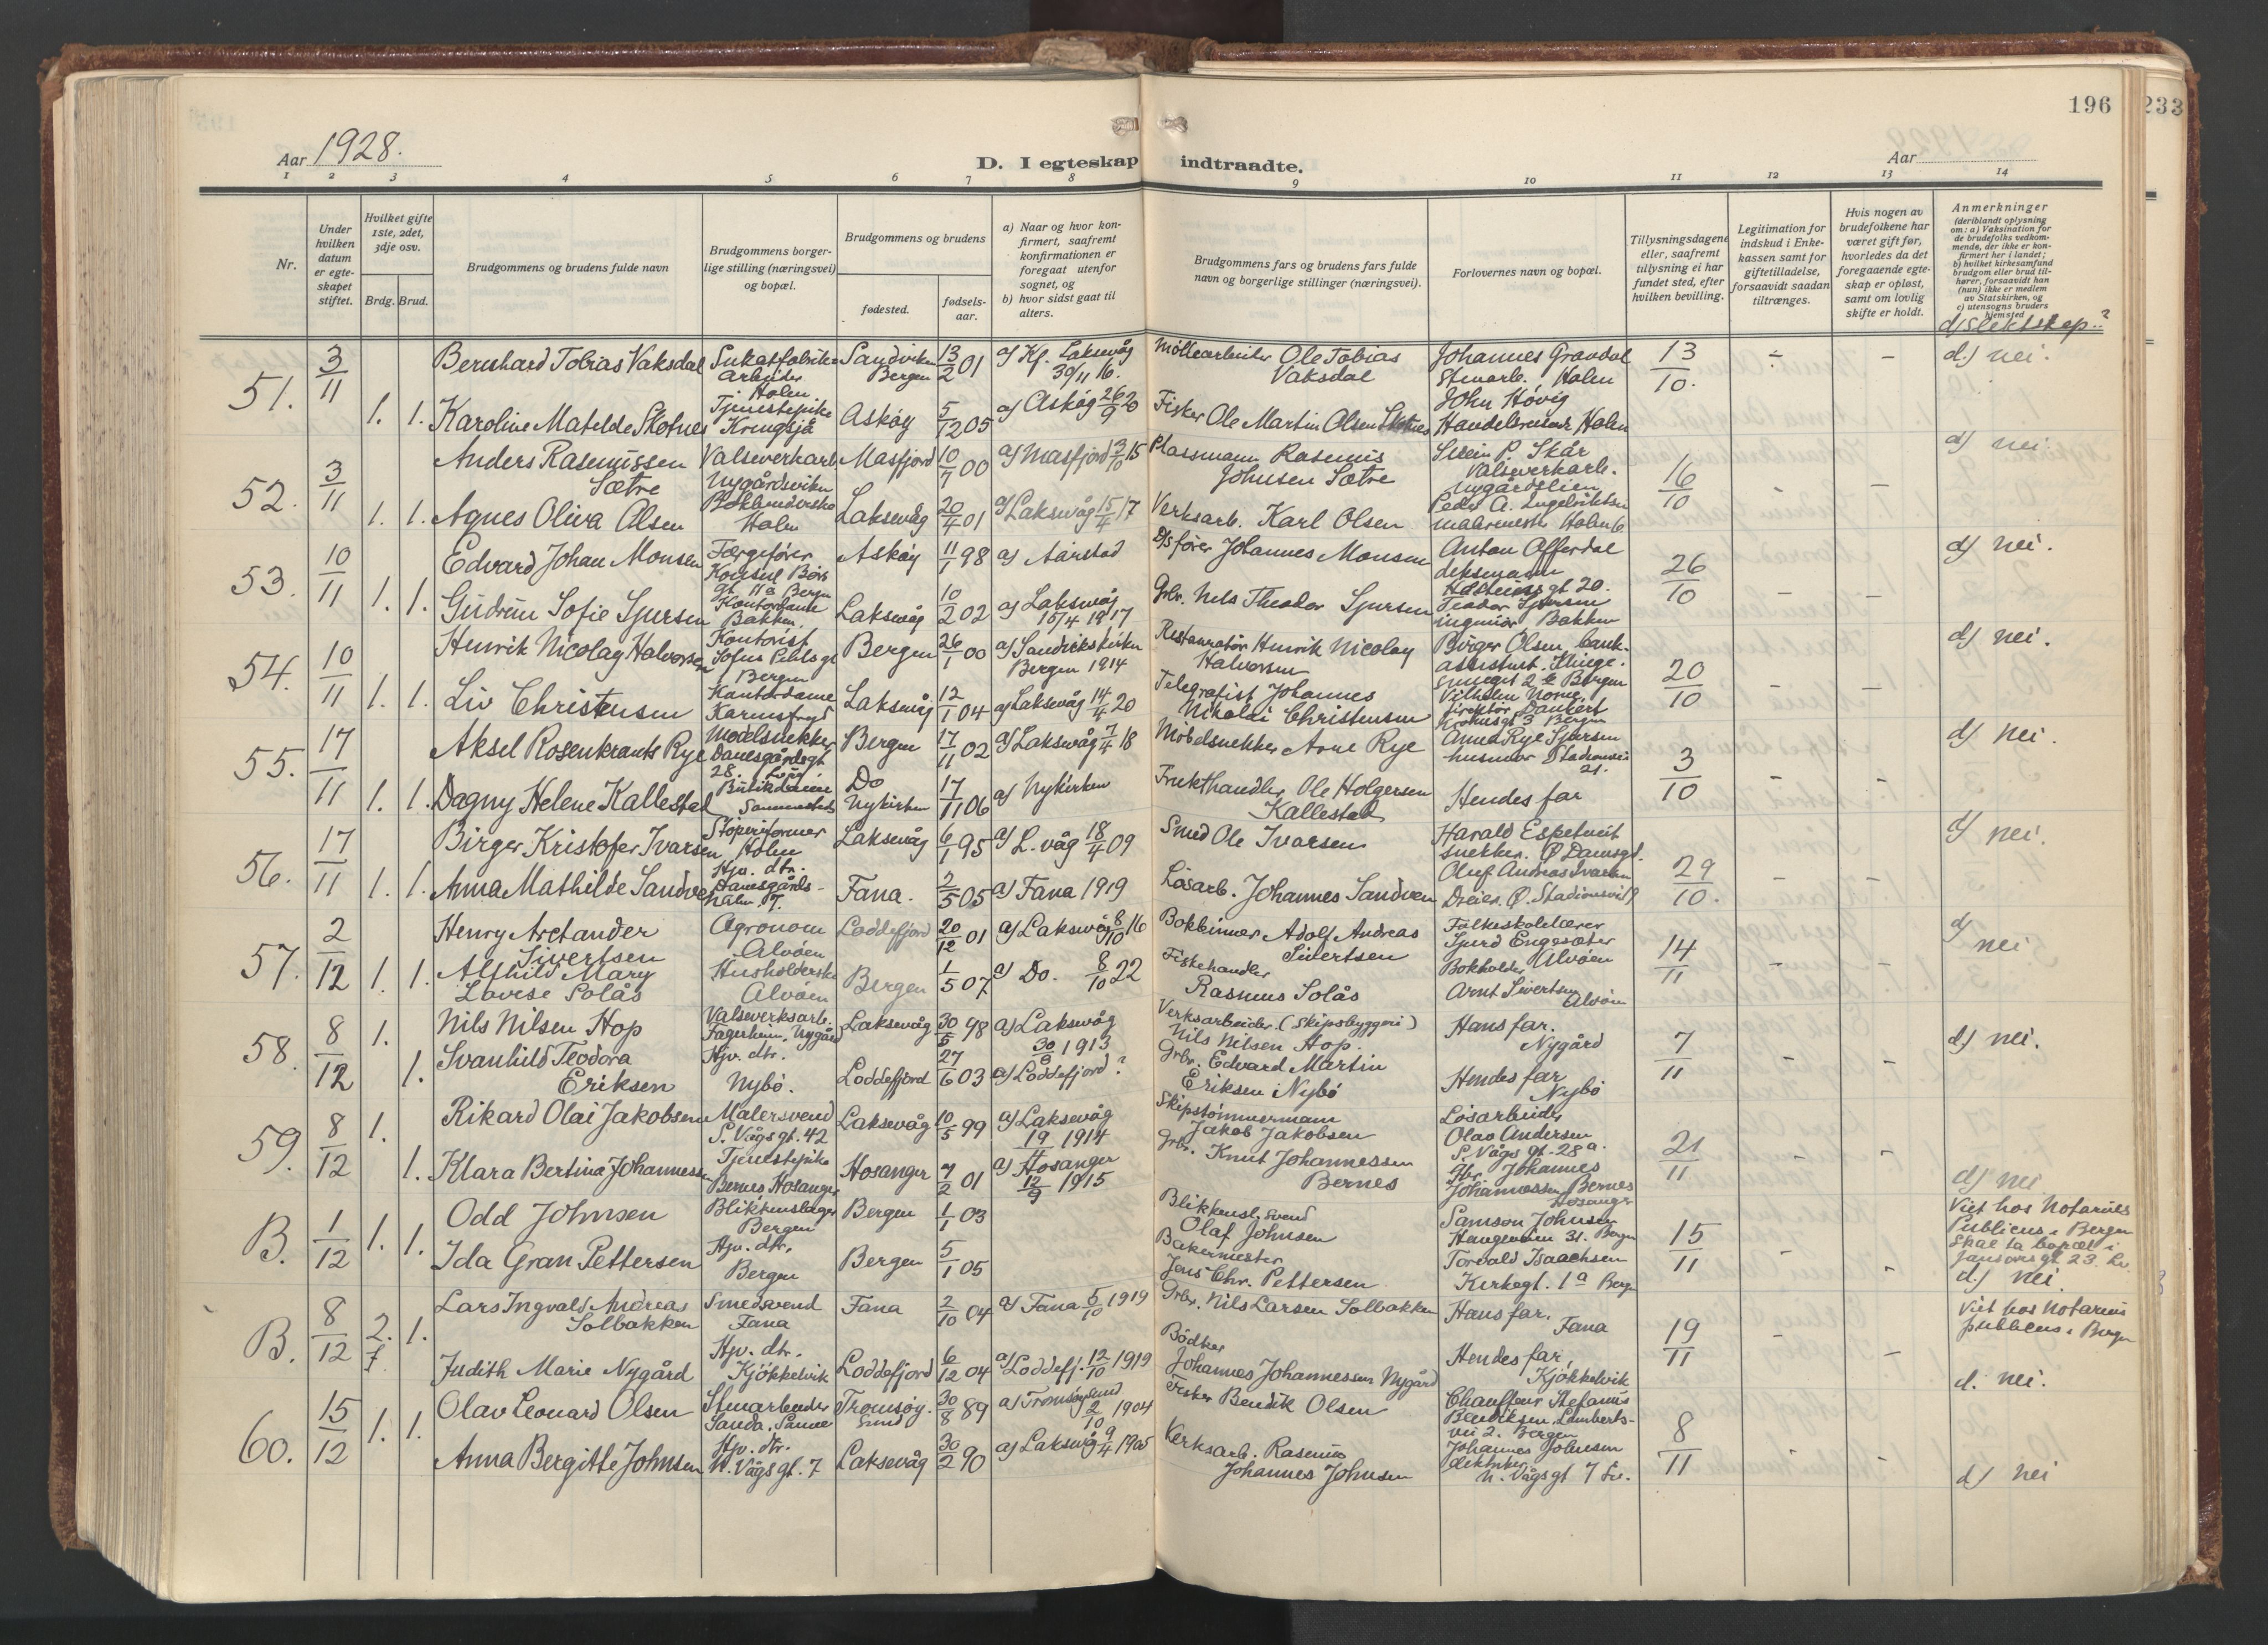 196
233
Aar 1928.
D. I egteskap indtraadte.
Aar
1 2 3 4 5 6 7 8 9 10 11 12 13 14
Nr.
Under hvilken datum er egteskapet stiftet.
Hvilket gifte 1ste, 2det, 3dje osv.
Brdg. Brud.
Brudgommens og brudens fulde navn
Brudgommens borgerlige stilling (næringsvei) og bopæl.
Brudgommens og brudens
fødested.
fødselsaar.
a) Naar og hvor konfirmert, saafremt konfirmationen er foregaat utenfor sognet, og
b) hvor sidst gaat til alters.
Brudgommens fars og brudens fars fulde navn og borgerlige stillinger (næringsvei).
Forlovernes navn og bopæl.
Tillysningsdagene eller, saafremt tillysning ei har fundet sted, efter hvilken bevilling.
Legitimation for indskud i Enkekassen samt for giftetilladelse, forsaavidt saadan tiltrænges.
Hvis nogen av brudefolkene har været gift før, hvorledes da det foregaaende egteskap er opløst, samt om lovlig skifte er holdt.
Anmerkninger
(deriblandt oplysning om: a) Vaksination for de brudefolks vedkommende, der ikke er konfirmert her i landet; b) hvilket kirkesamfund brudgom eller brud tilhører, forsaavidt han (hun) ikke er medlem av Statskirken, og c) utensogns bruders hjemsted
d) slektskap..?
51. 3/11 1. 1.
Bernhard Tobias Vaksdal Sukatfabrik-arbeider Holen Sandviken Bergen 13/2 01 a) Kf. Laksevåg 30/11 16. Møllearbeider Ole Tobias Vaksdal Johannes Gravdal Stenarb. Holen 13/10. - - d.) nei.
Karoline Matelde Skotnes Tjenestepike Kringsjå Askøy 5/12 05 a) Askøy 26/9 20 Fisker Ole Martin Olsen Skotnes John Høvig Handelsreisende Holen
52. 3/11 1. 1.
Anders Rasmussen Sætre Valseverkarb. Nygårdsviken Masfjord 10/7 00 a) Masfjord 3/10 15 Plassmann Rasmus Johnsen Sætre Svein P. Skår Valseverkarb. Nygårdslien 16/10 - - d) nei.
Agnes Oliva Olsen Holen Laksevåg 20/4 01 a) Laksevåg 15/4 17 Verksarb. Karl Olsen Peder A. Ingebriktsen malermester Holen
53. 10/11 1. 1.
Edvard Johan Monsen Færgefører Konsul Børs gt. 11a Bergen Askøy 11/1 98 a) Aarstad D/S fører Johannes Monsen Anton Offerdal deksmann Holsteinsgt 20. 26/10 - - d) nei.
Gudrun Sofie Sjursen Kontordame Bakken. Laksevåg 10/2 02 a) Laksevåg 15/4 1917 Grbr. Nels Theodor Sjursen Teodor Sjursen ingeniør Bakken
54. 10/11 1. 1.
Henrik Nicolay Halvorsen Kontorist Sofus Pihlsgt Bergen Bergen 26/1 00 a) Sandvikskirken Bergen 1914 Restauratør Henrik Nicolay Halvorsen Birger Olsen, bankassistent. Bergen 20/10 - - d) nei.
Liv Christensen Kontordame Laksevåg 12/1 04 a) Laksevåg 14/4 20 Telegrafist Johannes Nikolai Christensen Vilhelm Norne, direktør Bergen
55. 17/11 1. 1.
Aksel Rosenkrants Rye Møbelsnekker Damsgårdsgt 28. Bergen 17/11 02 a) Laksevåg 7/4 18 Møbelsnekker Arne Rye Anna Rye Sjursen husmor Stadionsvei 21. 3/10 - - d) nei.
Dagny Helene Kallestad Butikdame Sammesteds Do Nykirken 17/11 06 a) Nykirken Frukthandler Ole Holgersen Kallestad Hendes far
56. 17/11 1. 1.
Birger Kristofer Ivarsen Støperiformer Holen Laksevåg 6/1 95 a) L. våg 18/4 09 Smed Ole Ivarsen Harald Espetveit snekker. Ø Damsgt. 29/10. - - d) nei.
Anna Mathilde Sandven Hjv. dtr. Damsgårds- Fana. 2/5 05 a) Fana 1919 Løsarb. Johannes Sandven Oluf Andreas Ivarsen Dreier. Ø. Stadionsvei 9
57. 2/12 1. 1.
Henry Arctander Sivertsen Agronom Alvøen Loddefjord 20/12 01 a) Laksevåg 8/10 16 Bokbinder Adolf Andreas Sivertsen Folkeskolelærer Sjurd Engesæter Alvøen 14/11 - - d) nei
Alfhild Mary Lovise Solås Husholderske Alvøen Bergen 1/5 07 a) Do. 8/10 22 Fiskehandler Rasmus Solås Bokholder Arnt Sivertsen Alvøen
58. 8/12 1. 1.
Nils Nilsen Hop Valseverksarb. Fagerheim, Nygård Laksevåg 30/5 98 a) Laksevåg 30/3 1913 Verksarbeider (Skipsbyggeri) Nils Nilsen Hop. Hans far. Nygård 7/11 - - d) nei.
Svanhild Teodora Eriksen Hjv. dtr. Nybø. Loddefjord 27/6 03 a) Loddefjord? Grbr. Edvard Martin Eriksen i Nybø Hendes far Nybø
59. 8/12 1. 1.
Rikard Olai Jakobsen Malersvend S. Vågsgt. 42 Laksevåg 10/5 99 a) Laksevåg 19 1914 Skipstømmermann Jakob Jakobsen Løsarbeider Olav Andersen S. Vågs gt. 28a. 21/11 - - d) nei
Klara Bertina Johannessen Tjenestepike Bernes Hosanger Hosanger 7/2 01 a) Hosanger 12/9 1915 Grbr. Knut Johannessen Bernes Gbr. Johannes Johannessen Bernes Hosanger
B. 1/12 1. 1.
Odd Johnsen Blikkenslager Bergen Bergen 1/1 03 Blikkensl. svend Olaf Johnsen Samson Johnsen Haugeveien 31. Bergen 15/11 - - Viet hos Notarius Publicus i Bergen Skal ta bopæl i Jansonsgt. 23. Lv.
Ida Gran Pettersen Hjv. dtr. Bergen Bergen 5/1 05 Bakermester Jens Chr. Pettersen Torvald Isaachsen Kirkegt. 1a Bergen d.) nei.
B. 8/12 2. 1.
Lars Ingvald Andreas Solbakken Smedsvend Fana Fana 2/10 04 a) Fana 5/10 1919 Grbr. Nils Larsen Solbakken Hans far. Fana 19/11 - - Viet hos Notarius publicus i Bergen
Judith Marie Nygård Hjv. dtr. Kjøkkelvik Loddefjord 6/12 04 a) Loddefj. 12/10 1919 Bødker Johannes Johannessen Nygård Hendes far, Kjøkkelvik d. nei.
60. 15/12 1. 1.
Olav Leonard Olsen Stenarbeider Tromsøysund 30/8 89 a) Tromsøysund 2/10 1904 Fisker Bendik Olsen Chauffeur Stefanus Bendiksen, Lambertsvei 2. Bergen 8/11 - -
Anna Bergitte Johnsen Hjv. dtr. N. Vågsgt. 7 Laksevåg 30/2 90 a) Laksevåg 9/4 1905 Verksarb. Rasmus Johannes Johnsen Johannes Johnsen N. Vågsgt 7 Lv. d) nei